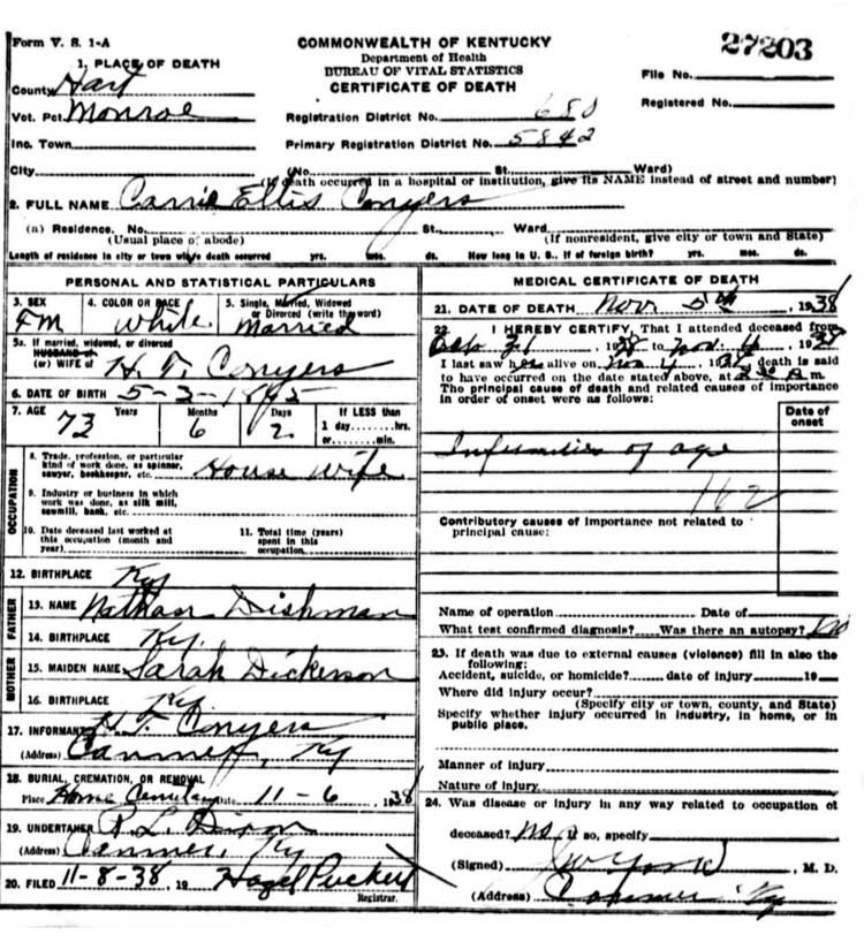 Form V. S. 1-A
COMMONWEALTH OF KENTUCKY
Department of Health
BUREAU OF VITAL STATISTICS
CERTIFICATE OF DEATH
27203
File No.
Registered No.
1. PLACE OF DEATH
County Hart
Vot. Pct. Monroe
Inc. Town
City
Registration District No. 680
Primary Registration District No. 5842
(No. St. Ward)
(If death occurred in a hospital or institution, give its NAME instead of street and number)
2. FULL NAME Carrie Ellis Conyers
(a) Residence. No. St., Ward
(Usual place of abode) (If nonresident, give city or town and State)
Length of residence in city or town where death occurred yrs. mos. ds. How long in U. S., if of foreign birth? yrs. mos. ds.
PERSONAL AND STATISTICAL PARTICULARS
3. SEX 4. COLOR OR RACE 5. Single, Married, Widowed
or Divorced (write the word)
FM White Married
5a. If married, widowed, or divorced
HUSBAND of
(or) WIFE of H. T. Conyers
6. DATE OF BIRTH 5-3-
7. AGE Years Months Days If LESS than
73 6 2 1 day........hrs.
or........min.
OCCUPATION
8. Trade, profession, or particular
kind of work done, as spinner,
sawyer, bookkeeper, etc. House wife
9. Industry or business in which
work was done, as silk mill,
sawmill, bank, etc.
10. Date deceased last worked at
this occupation (month and
year)
11. Total time (years)
spent in this
occupation
12. BIRTHPLACE Ky
FATHER
13. NAME Nathan Dishman
14. BIRTHPLACE Ky.
MOTHER
15. MAIDEN NAME Sarah Dickerson
16. BIRTHPLACE Ky
17. INFORMANT H. T. Conyers
(Address) Canmer, Ky
18. BURIAL, CREMATION, OR REMOVAL
Place Home Cemetary Date 11-6, 1938
19. UNDERTAKER P. L. Dixon
(Address) Canmer, Ky
20. FILED 11-8-38, 19 Hazel Puckett
Registrar.
MEDICAL CERTIFICATE OF DEATH
21. DATE OF DEATH Nov 5th, 1938
22. I HEREBY CERTIFY, That I attended deceased from
31, 1938 to Nov. 4, 1938
I last saw her alive on Nov 4, 1938, death is said
to have occurred on the date stated above, at m.
The principal cause of death and related causes of importance
in order of onset were as follows:
Date of
onset
Infirmities of age
162
Contributory causes of importance not related to
principal cause:
Name of operation Date of
What test confirmed diagnosis? Was there an autopsy? No
23. If death was due to external causes (violence) fill in also the
following:
Accident, suicide, or homicide? date of injury 19
Where did injury occur?
(Specify city or town, county, and State)
Specify whether injury occurred in industry, in home, or in
public place.
Manner of injury
Nature of injury
24. Was disease or injury in any way related to occupation of
deceased? No If so, specify
(Signed) J W York, M. D.
(Address) Canmer Ky